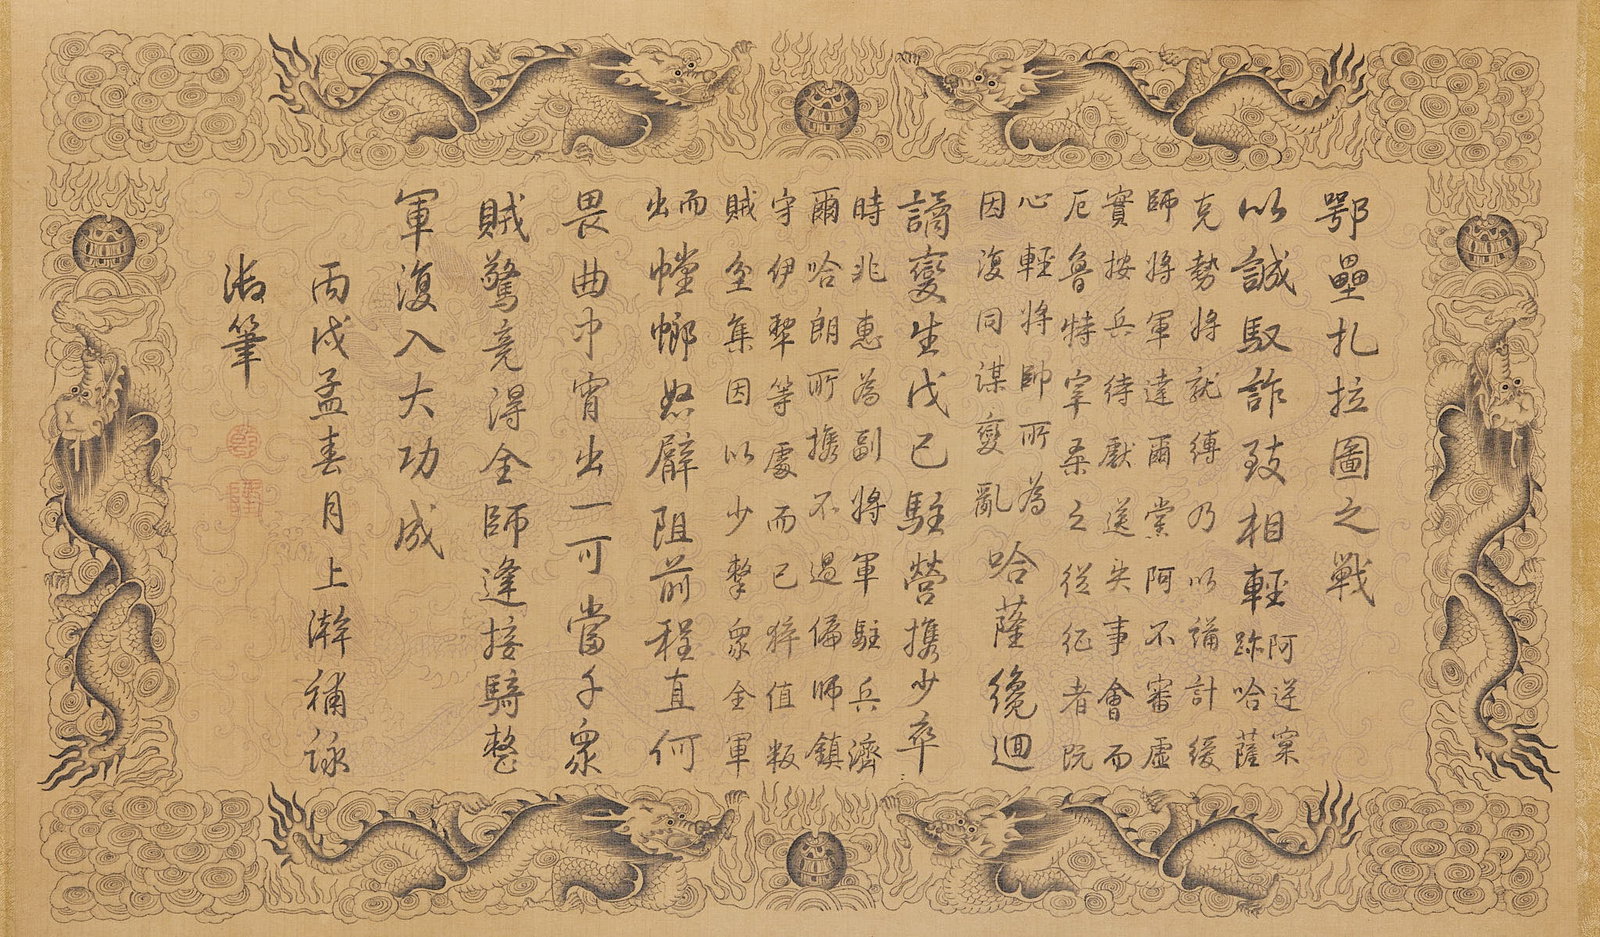 鄂壘扎拉圖之戰
以誠馭詐致相輕
阿逆窜
跡哈薩
克勢將就縛乃以譎計緩
師將軍達爾黨阿不審虛
實按兵待獻送失事會而
厄魯特宰桑之從征者既
心輕將帥所為
因復同謀變亂
哈薩纔迴
譎變生戊己駐營携少卒
時兆惠為副將軍駐兵濟
爾哈朗所携不過偏師鎮
守伊犂等處而已猝值叛
賊坌集因以少擊衆全軍
而
出
螗蜋怒臂阻前程直何
畏曲中宵出一可當千衆
賊驚竟得全師逢接騎整
軍復入大功成
丙戌孟春月上澣補詠
御筆
乾
隆